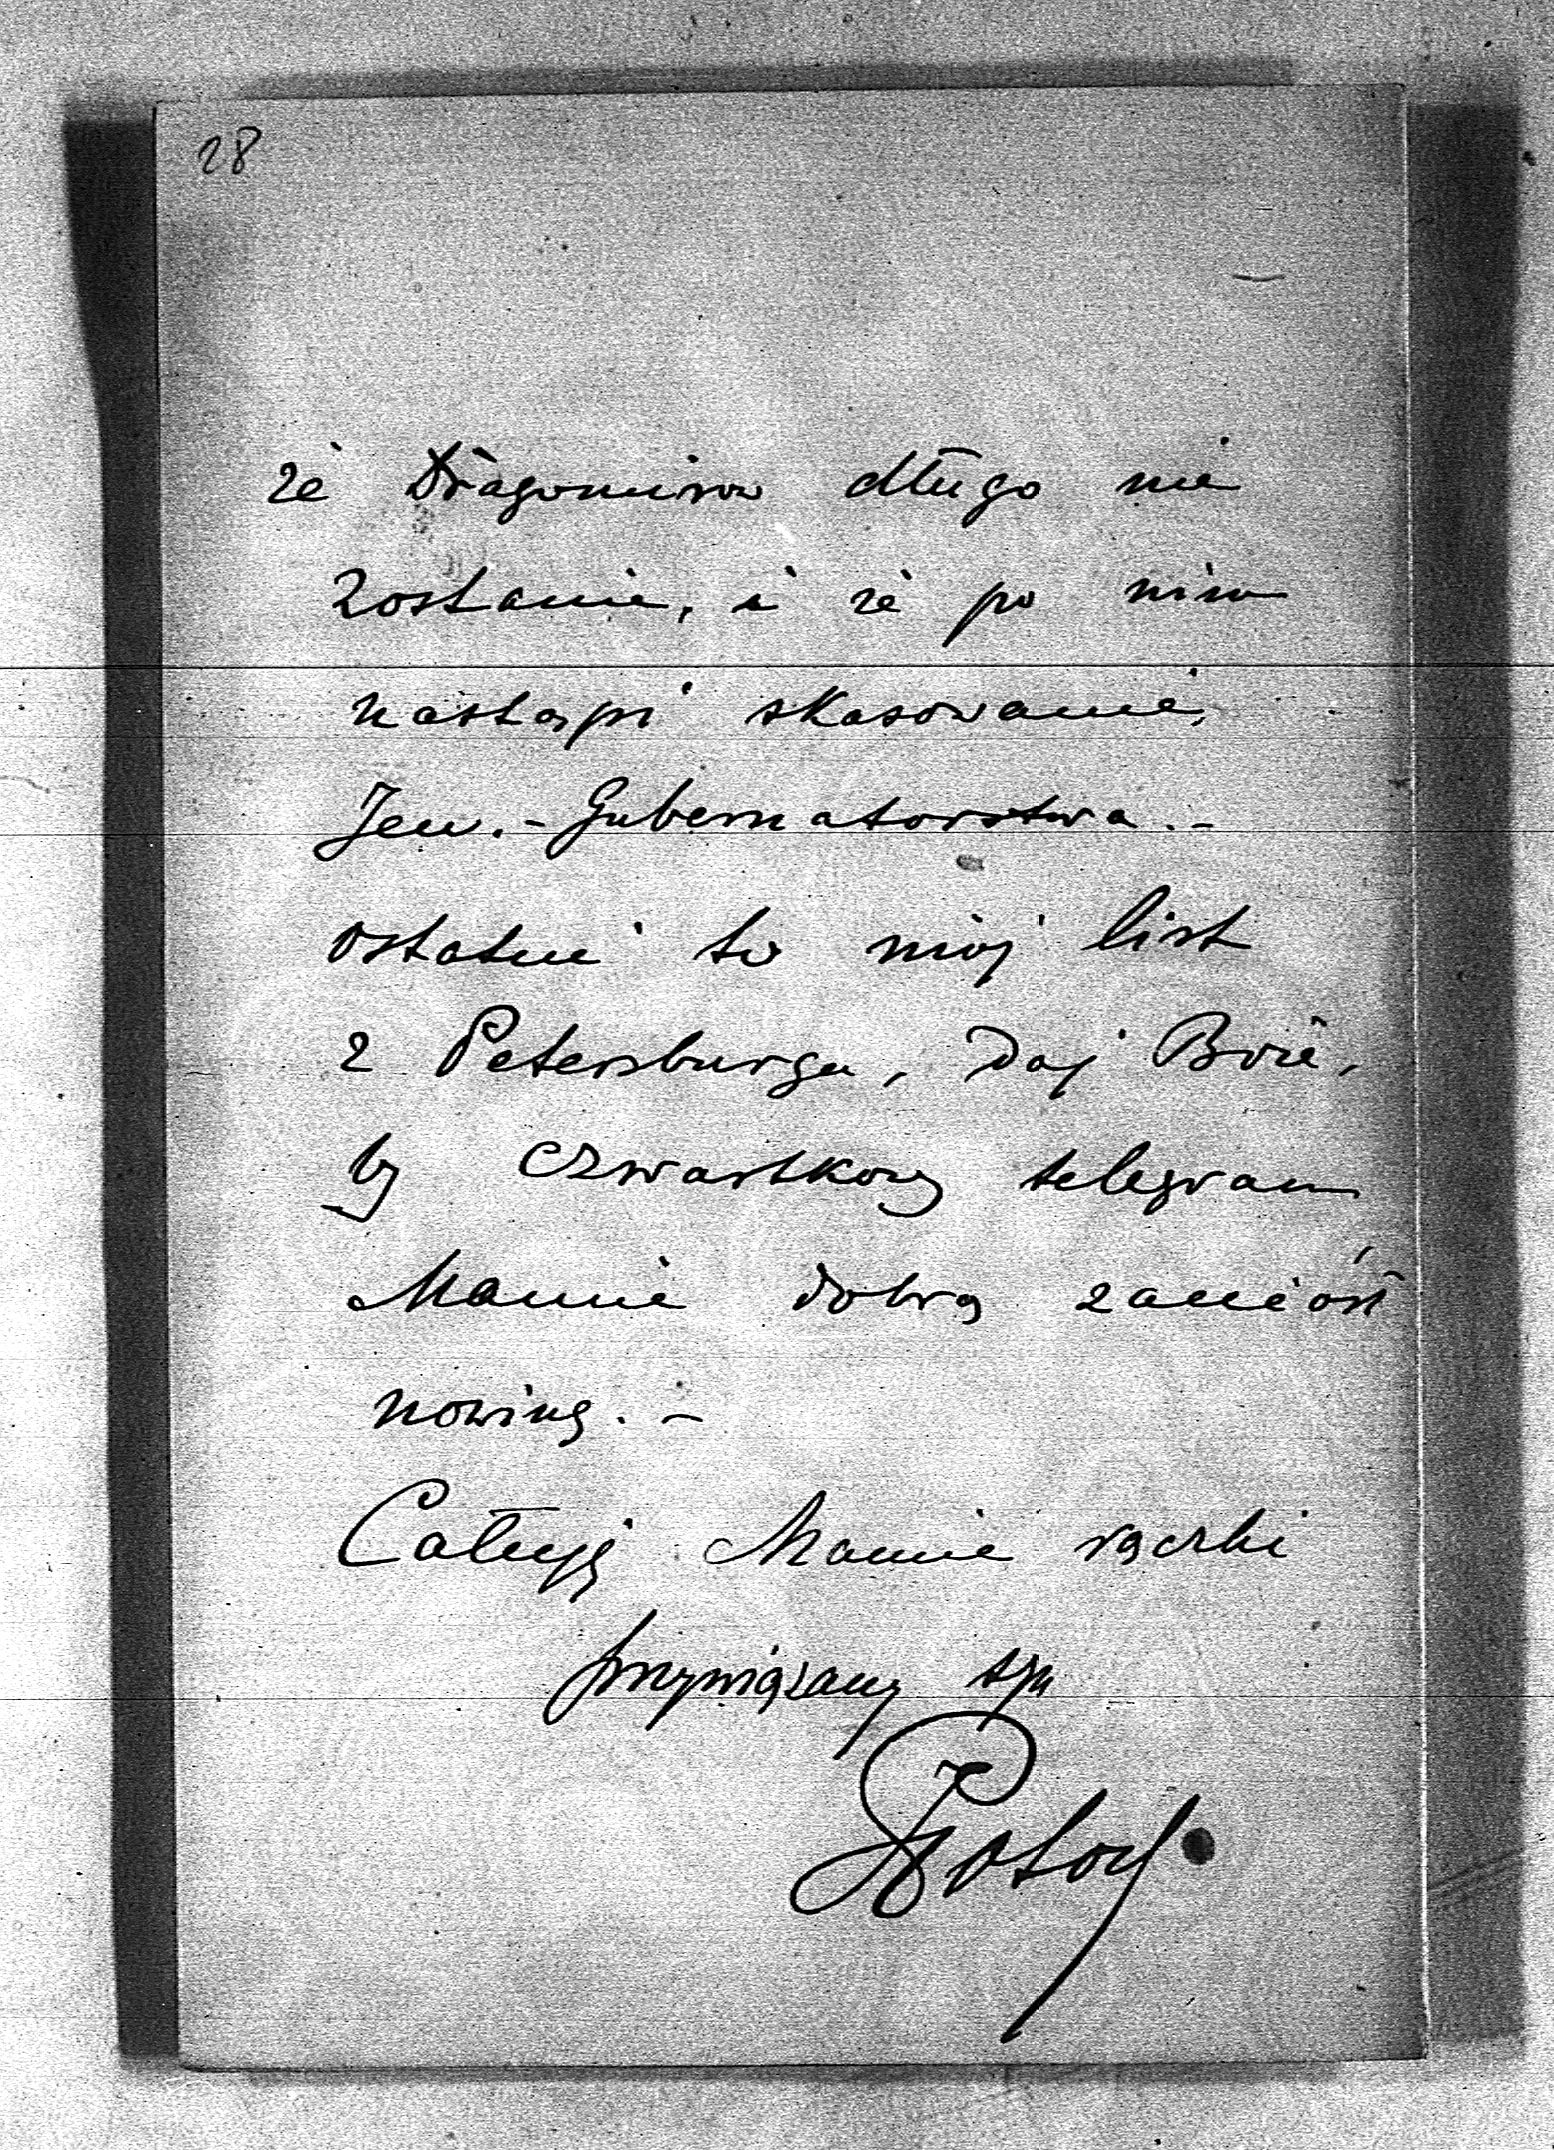 28
że Dragomirow długo nie
zostanie, i że po nim
nastąpi skasowanie
Jen.- Gubernatorstwa.-
ostatni to mój list
z Petersburga, Daj Boże,
by czwartkowy telegram
Mamie dobrą zaniósł
nowinę.-
Całuję Mamie rączki
przywiązany syn